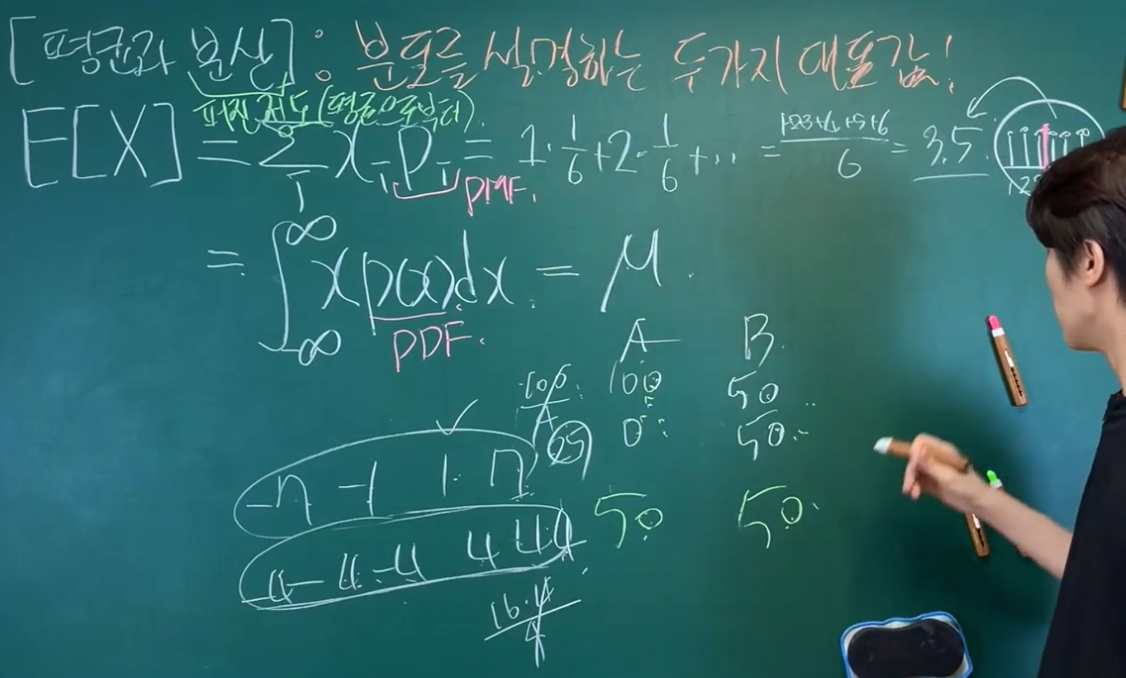 [평균과 분산] : 분포를 설명하는 두가지 대표값!
퍼진 정도 (평균으로부터)
E[X] = Σ_i x_i p_i = 1·1/6 + 2·1/6 + ... = (1+2+3+4+5+6)/6 = 3.5.
PMF.
= ∫_{-∞}^{∞} x p(x) dx = μ.
PDF.
A B.
100 50
0 50
50 50
-7 -1 1 7
100/4
25
-4 -4 4 4
16·4/4